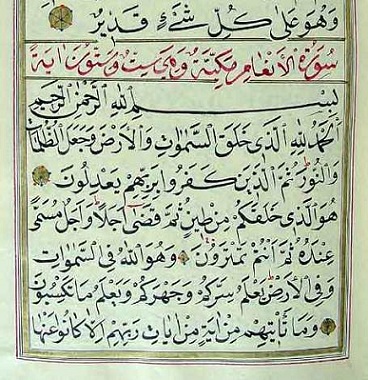 وَهُوَ عَلَىٰ كُلِّ شَىْءٍ قَدِيرٌ
سُورَةُ الْأَنْعَامِ مَكِّيَّةٌ وَهِىَ مِائَةٌ وَسِتُّونَ اٰيَةً
بِسْمِ اللهِ الرَّحْمٰنِ الرَّحِيمِ
اَلْحَمْدُ لِلّٰهِ الَّذِى خَلَقَ السَّمٰوَاتِ وَالْاَرْضَ وَجَعَلَ الظُّلُمَاتِ
وَالنُّورَ ثُمَّ الَّذِينَ كَفَرُوا بِرَبِّهِمْ يَعْدِلُونَ
هُوَ الَّذِى خَلَقَكُمْ مِنْ طِينٍ ثُمَّ قَضٰى اَجَلًا وَاَجَلٌ مُسَمًّى
عِنْدَهُ ثُمَّ اَنْتُمْ تَمْتَرُونَ وَهُوَ اللهُ فِى السَّمٰوَاتِ
وَفِى الْاَرْضِ يَعْلَمُ سِرَّكُمْ وَجَهْرَكُمْ وَيَعْلَمُ مَا تَكْسِبُونَ
وَمَا تَأْتِيهِمْ مِنْ اٰيَةٍ مِنْ اٰيَاتِ رَبِّهِمْ اِلَّا كَانُوا عَنْهَا